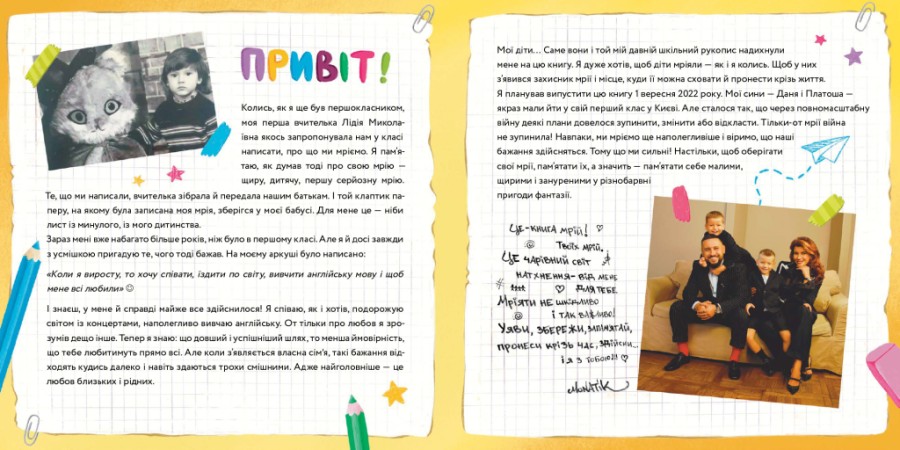 ПРИВІТ!
Колись, як я ще був першокласником,
моя перша вчителька Лідія Микола-
ївна якось запропонувала нам у класі
написати, про що ми мріємо. Я пам’я-
таю, як думав тоді про свою мрію —
щиру, дитячу, першу серйозну мрію.
Те, що ми написали, вчителька зібрала й передала нашим батькам. І той клаптик па-
перу, на якому була записана моя мрія, зберігся у моєї бабусі. Для мене це — ніби
лист із минулого, із мого дитинства.
Зараз мені вже набагато більше років, ніж було в першому класі. Але я й досі завжди
з усмішкою пригадую те, чого тоді бажав. На моєму аркуші було написано:
«Коли я виросту, то хочу співати, їздити по світу, вивчити англійську мову і щоб
мене всі любили» ☺
І знаєш, у мене й справді майже все здійснилося! Я співаю, як і хотів, подорожую
світом із концертами, наполегливо вивчаю англійську. От тільки про любов я зро-
зумів дещо інше. Тепер я знаю: що довший і успішніший шлях, то менша ймовірність,
що тебе любитимуть прямо всі. Але коли з’являється власна сім’я, такі бажання від-
ходять кудись далеко і навіть здаються трохи смішними. Адже найголовніше — це
любов близьких і рідних.
Мої діти... Саме вони і той мій давній шкільний рукопис надихнули
мене на цю книгу. Я дуже хотів, щоб діти мріяли — як і я колись. Щоб у них
з’явився захисник мрії і місце, куди її можна сховати й пронести крізь життя.
Я планував випустити цю книгу 1 вересня 2022 року. Мої сини — Даня і Платоша —
якраз мали йти у свій перший клас у Києві. Але сталося так, що через повномасштабну
війну деякі плани довелося зупинити, змінити або відкласти. Тільки-от мрії війна
не зупинила! Навпаки, ми мріємо ще наполегливіше і віримо, що наші
бажання здійсняться. Тому що ми сильні! Настільки, щоб оберігати
свої мрії, пам’ятати їх, а значить — пам’ятати себе малими,
щирими і зануреними у різнобарвні
пригоди фантазії.
Це-книга мрій!
Твоїх мрій,
Це чарівний світ
натхнення-від мене
для тебе
Мріяти не шкідливо
і так важливо!
Уяви, збережи, запам'ятай,
пронеси крізь час, здійсни...
і я з тобою!!!
MONATIK